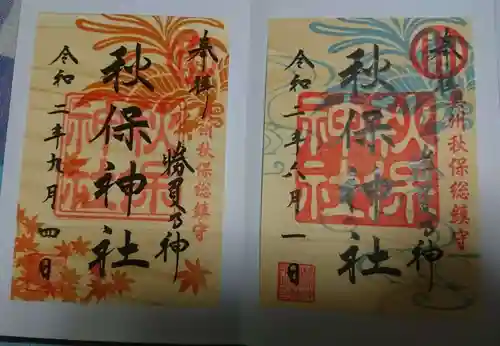 奉拝
奥州秋保総鎮守
勝負の神
秋保神社
秋保神社
令和二年九月四日
奉拝
奥州秋保総鎮守
勝負の神
秋保神社
秋保神社
令和二年八月一日